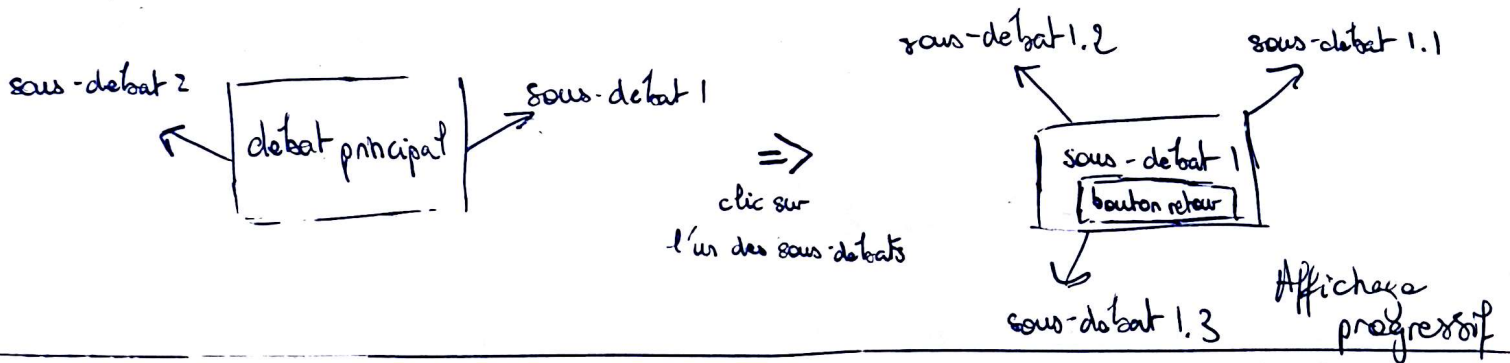 sous-debat 2
débat principal
sous-debat 1
=>
clic sur
l'un des sous-debats
sous-debat 1.2
sous-debat 1.1
sous-debat 1
bouton retour
sous-debat 1.3
Affichage
progressif